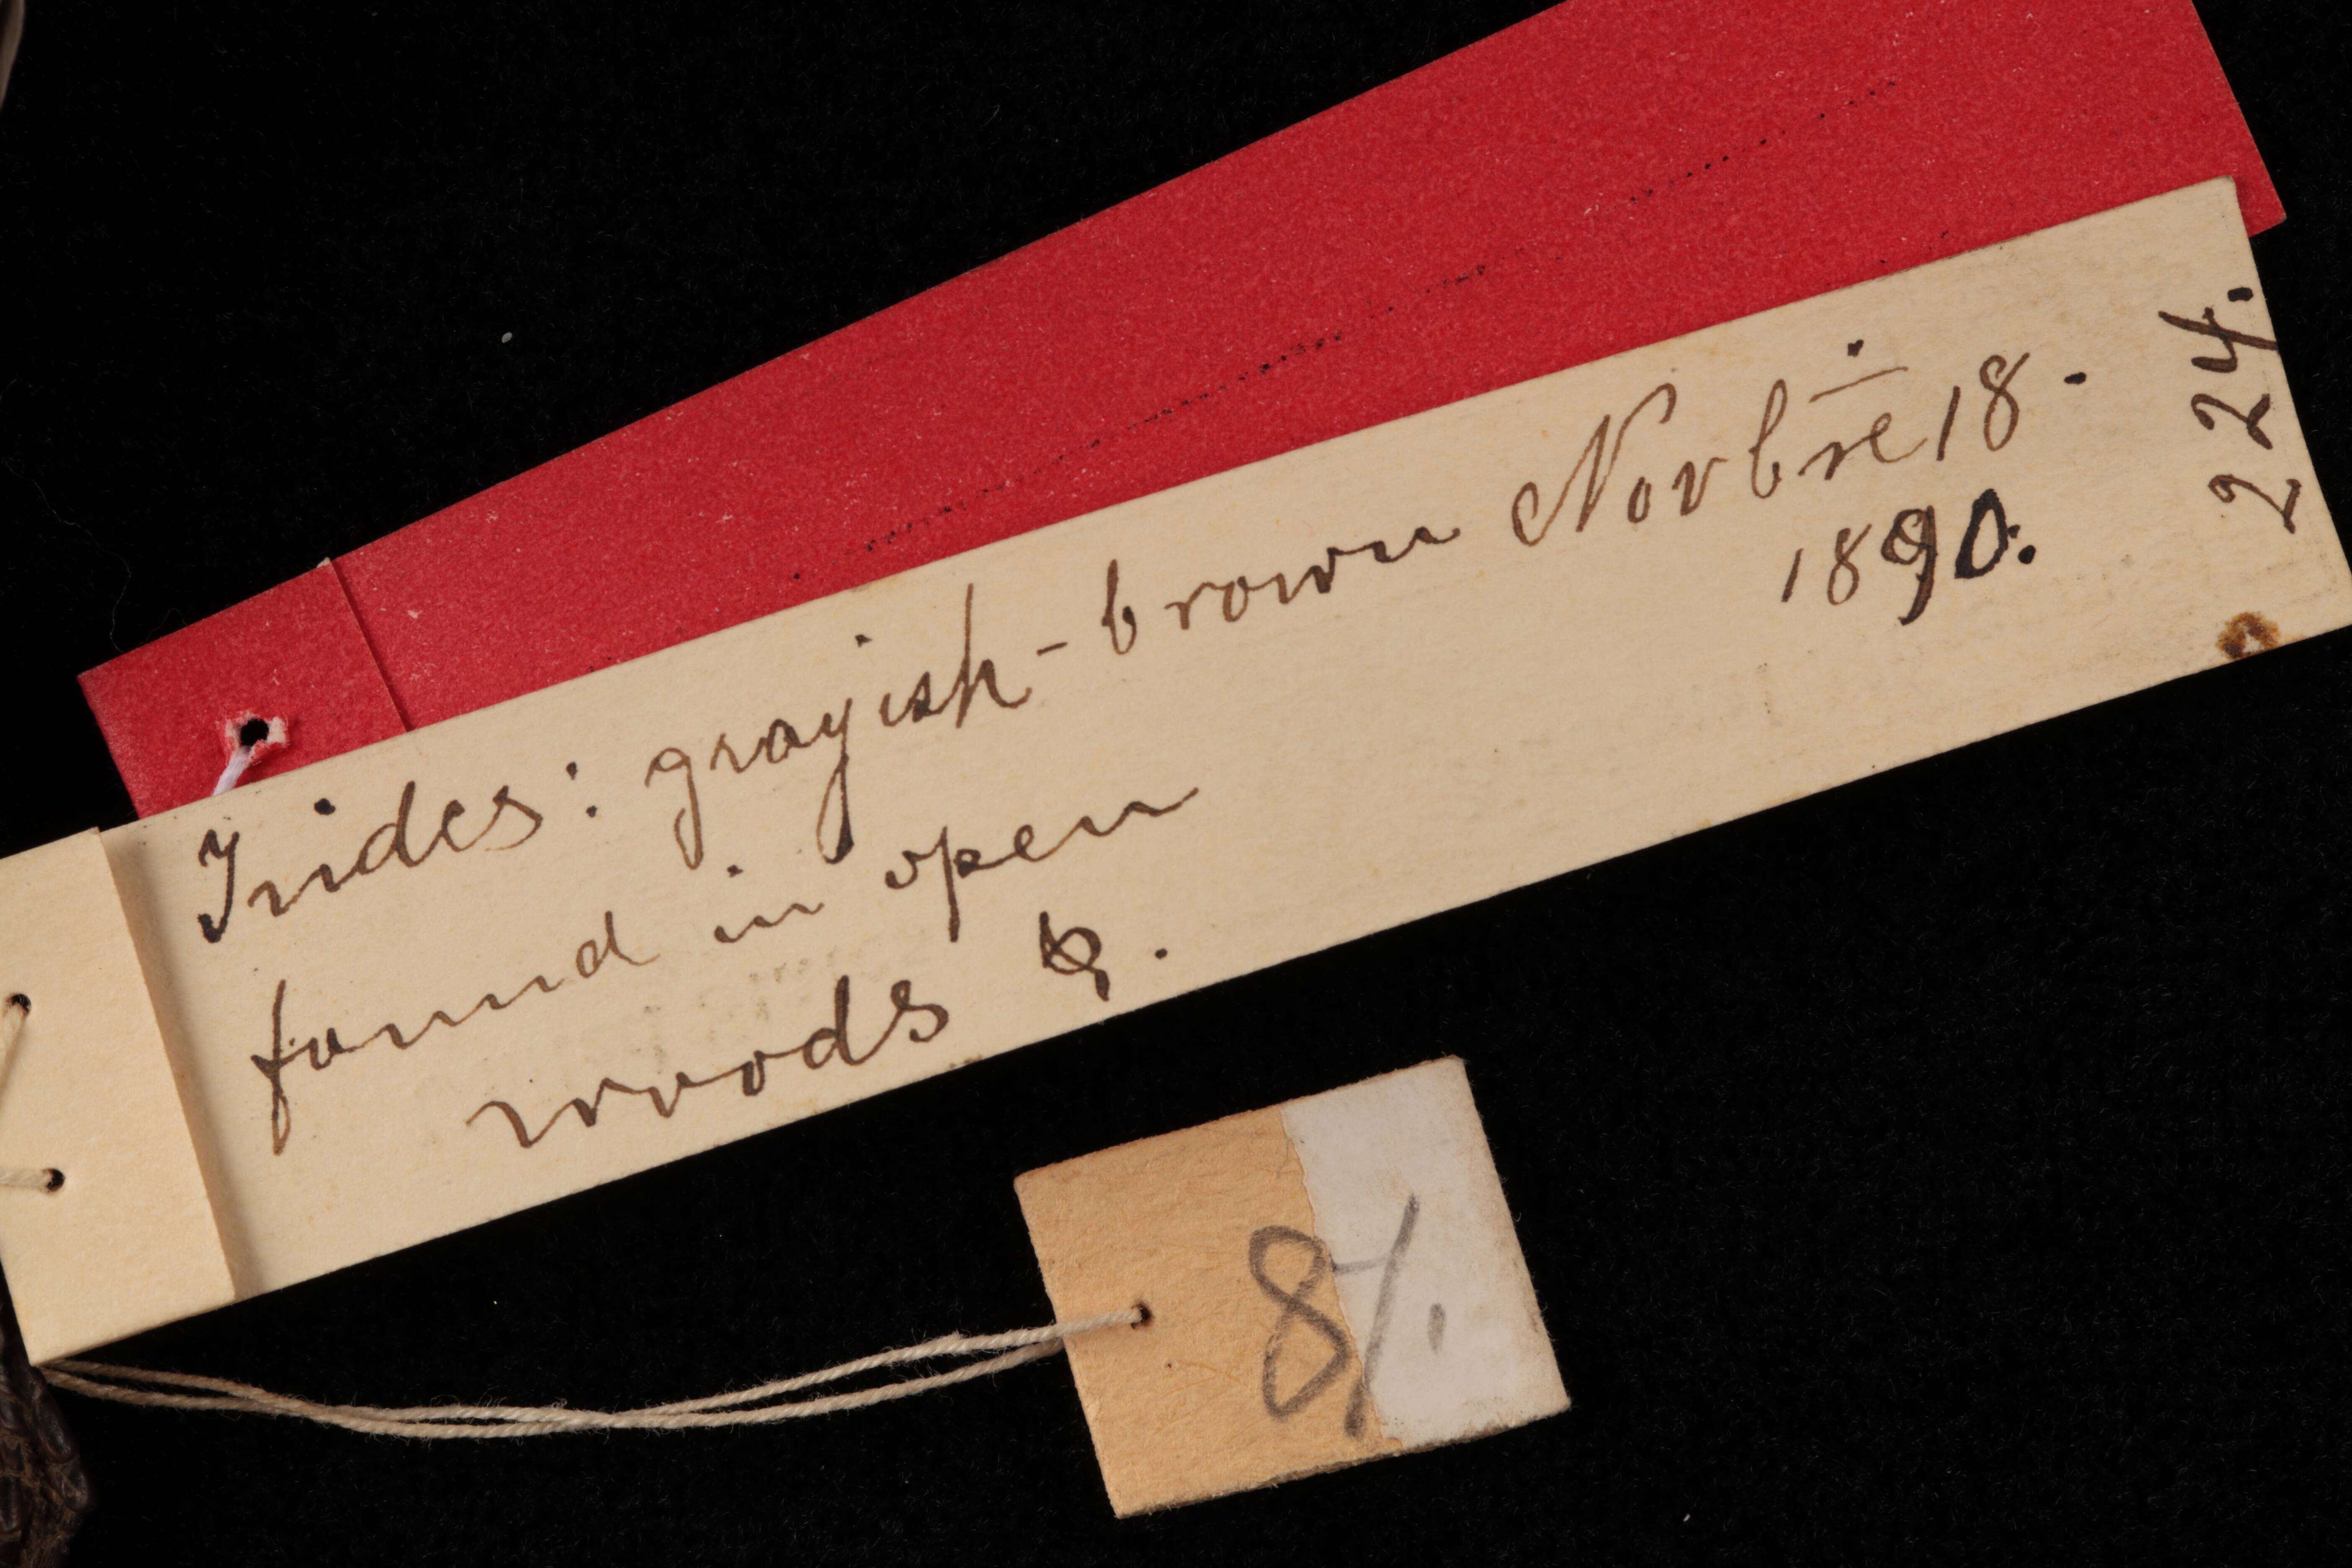 Irides: grayish-brown Novbre 18.
1890.
found in open
woods
224.
8/.